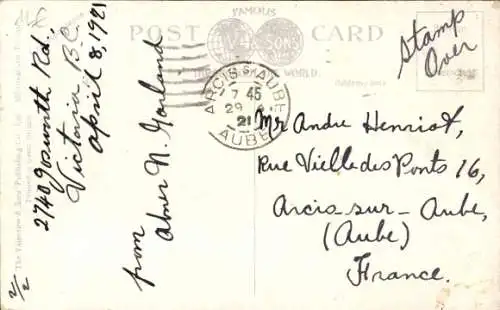 POST CARD
FAMOUS
THE WORLD.
The Valentine & Sons Publishing Co.
2740 Gosworth Rd.,
Victoria B.C.
April 8, 1921
from
Abner N. Gorland
Stamp
Over
ARCIS-S-AUBE
7 45
29 4
21
AUBE
Mr Andre Henriot,
Rue Vielle des Ponts 16,
Arcis-sur-Aube,
(Aube)
France.
2/2